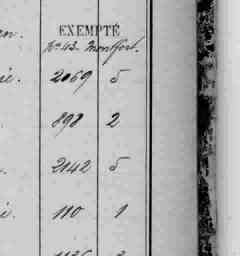 EXEMPTÉ
No 43. Montfort.
2069 5
898 2
2142 5
110 1